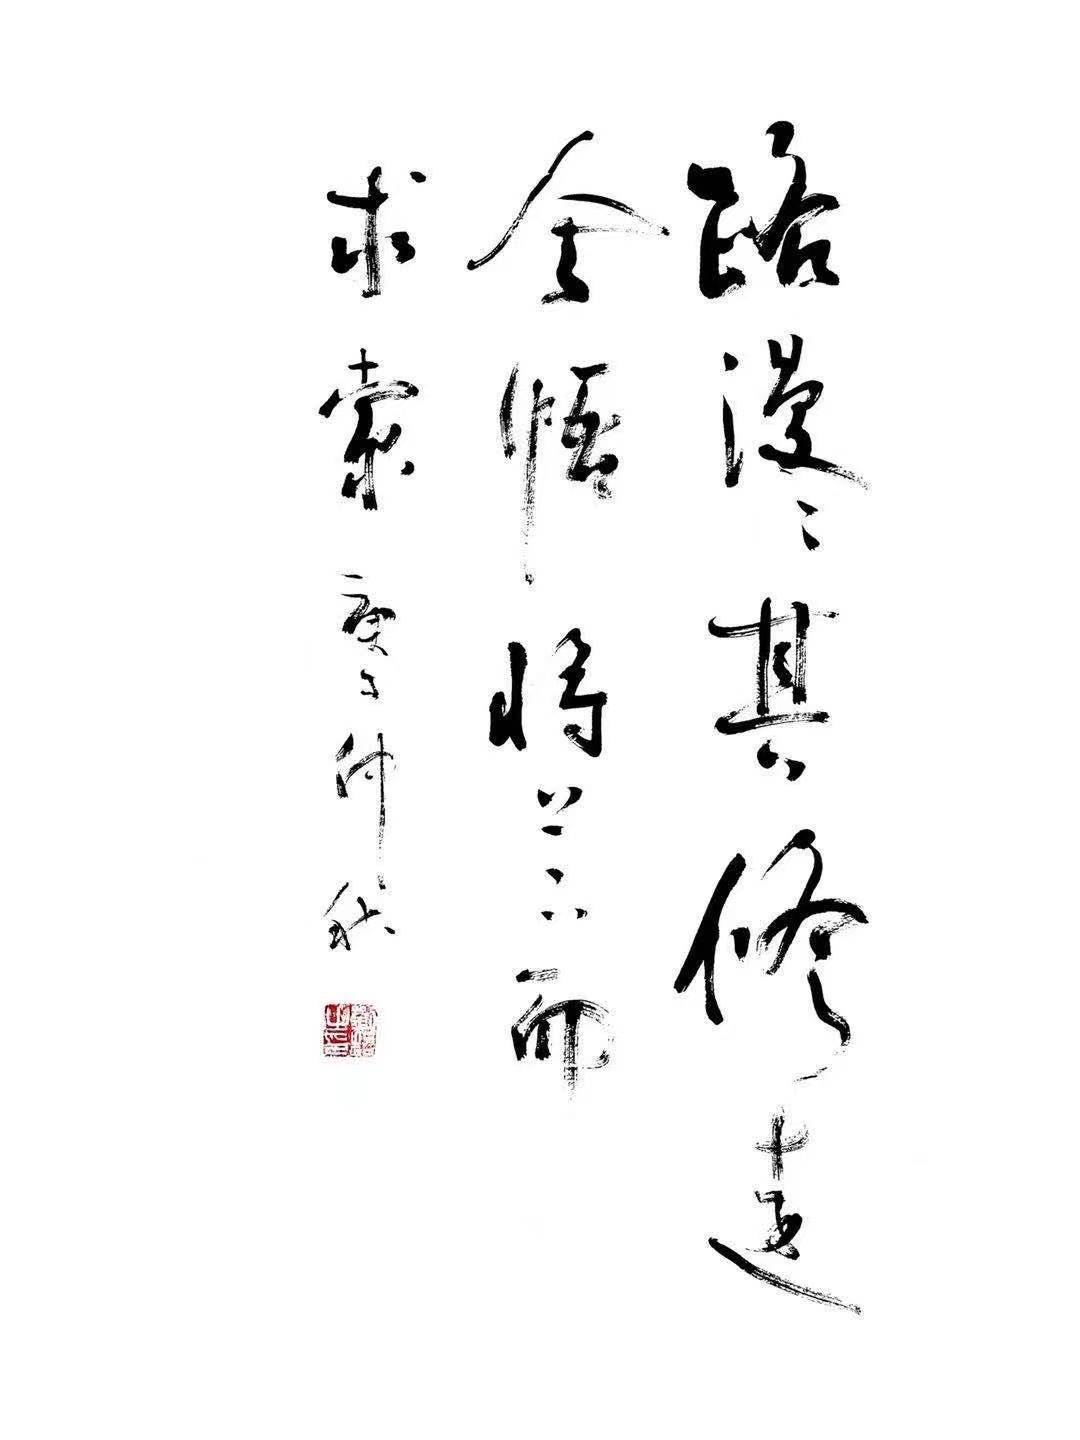 路漫〻其修遠
兮悟将上下而
求索 庚子仲秋